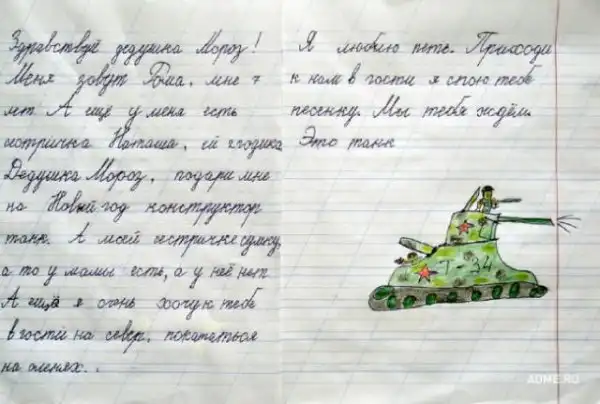 Здравствуй дедушка Мороз!
Меня зовут Рома, мне 7
лет. А ещё у меня есть
сестричка Наташа, ей 2 годика
Дедушка Мороз, подари мне
на Новый год конструктор
танк. А моей сестричке сумку,
а то у мамы есть, а у неё нет.
А ещё я очень хочу к тебе
в гости на север, покататься
на оленях.
Я люблю петь. Приходи
к нам в гости я спою тебе
песенку. Мы тебя ждём.
Это танк
Т-34
ADME.RU